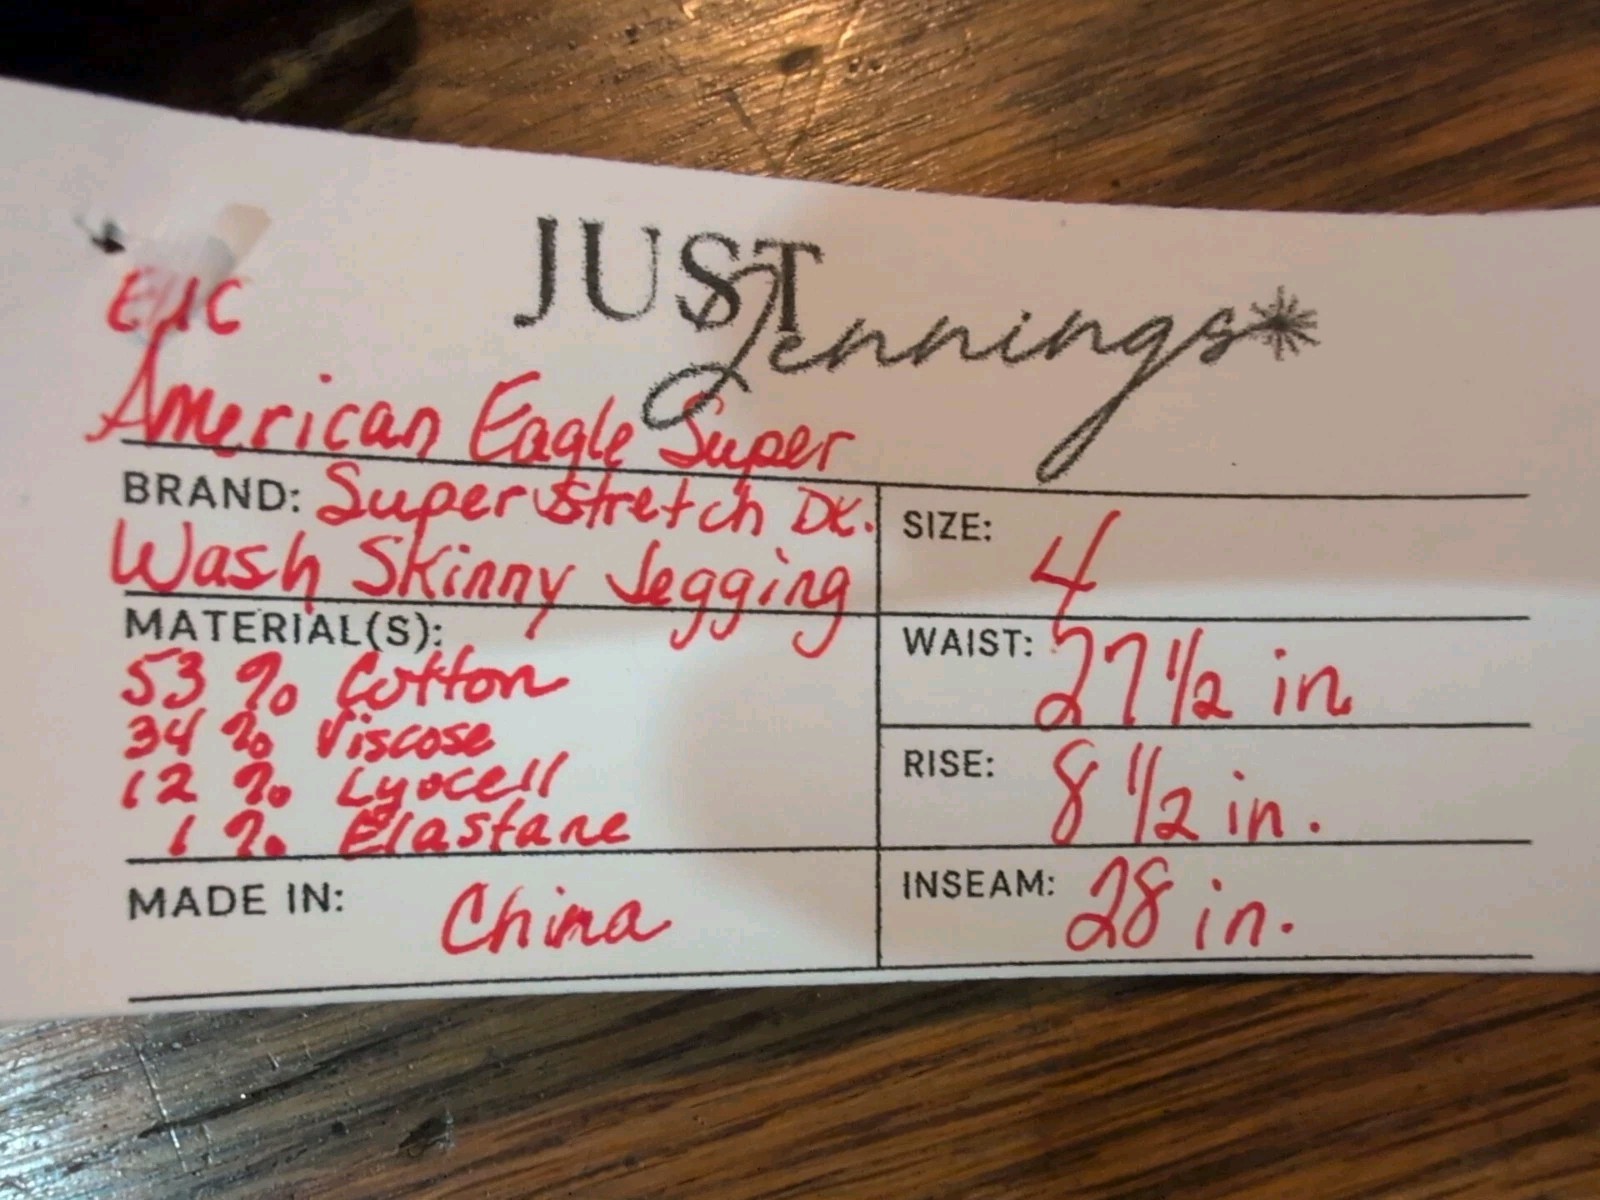 JUST
Jennings*
EUC
American Eagle Super
BRAND: Super Stretch DK.
Wash Skinny Jegging
SIZE: 4
MATERIAL(S):
53 % Cotton
34 % Viscose
12 % Lyocell
1 % Elastane
WAIST: 27 1/2 in
RISE: 8 1/2 in.
MADE IN: China
INSEAM: 28 in.